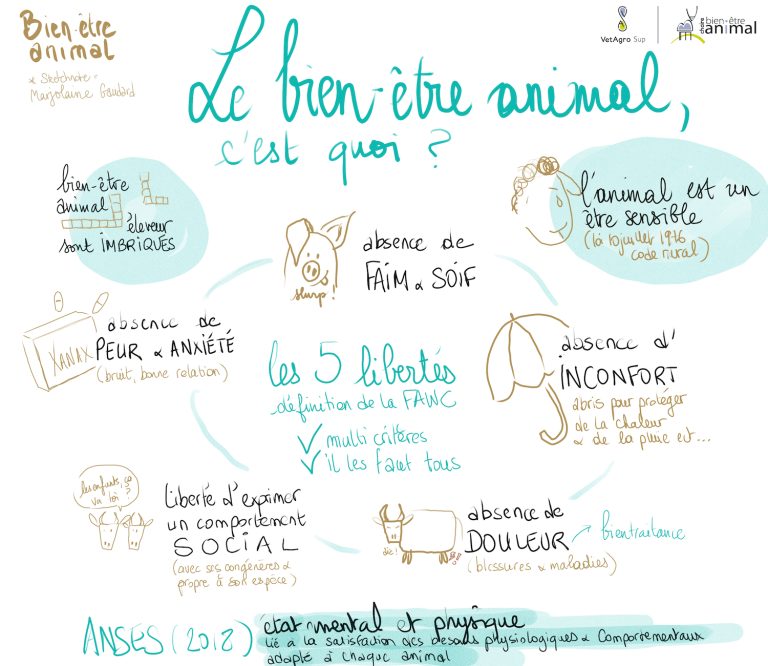 Bien-être
animal
Sketchnote
Marjolaine Gaudard
VetAgro Sup
chaire bien-être
animal
Le bien-être animal,
c'est quoi ?
bien-être
animal
éleveur
sont IMBRIQUÉS
l'animal est un
être sensible
(loi 10 juillet 1976
code rural)
slurp !
absence de
FAIM & SOIF
XANAX
absence de
PEUR & ANXIÉTÉ
(bruit, bonne relation)
les 5 libertés
définition de la FAWC
✓ multi critères
✓ il les faut tous
absence d'
INCONFORT
abris pour protéger
de la chaleur
& de la pluie ect...
les enfants, ça
va ici ?
liberté d'exprimer
un comportement
SOCIAL
(avec ses congénères &
propre à son espèce)
absence de
DOULEUR
(blessures & maladies)
bientraitance
ANSES (2018)
état mental et physique
lié à la satisfaction des besoins physiologiques & comportementaux
adapté à chaque animal